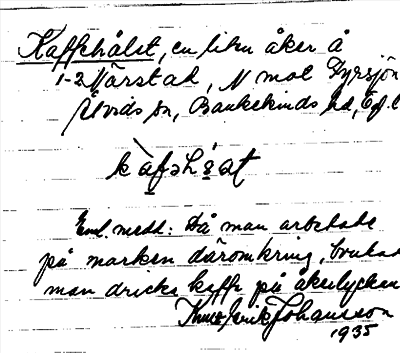 Kaffehålet, en liten åker å
1-2 Närstad, N mot Dyrsjön
Åtvids sn, Bankekinds hd, Ög. l
kafəhåat
Enl. medd: Då man arbetade
på marken däromkring, brukade
man dricka kaffe på åkerlyckan
Knut-Erik Johansson
1935